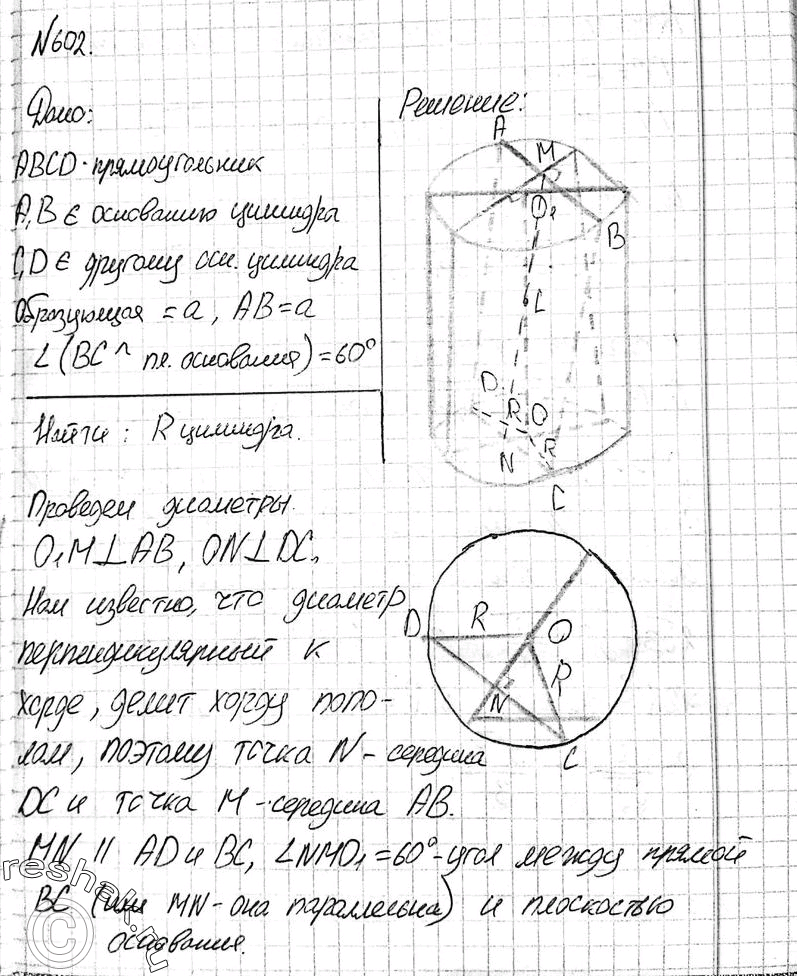 N602.
Дано:
ABCD - прямоугольник
A, B ∈ основанию цилиндра
C, D ∈ другому осн. цилиндра
Образующая = a, AB = a
∠(BC ^ пл. основания) = 60°
Найти: R цилиндра.
Решение:
A
M
O₁
B
L
D
R
O
R
N
C
Проведем диаметры
O₁M⊥AB, ON⊥DC,
Нам известно, что диаметр
перпендикулярный к
хорде, делит хорду попо-
лам, поэтому точка N - середина
DC и точка M - середина AB.
MN || AD и BC, ∠NMO₁ = 60° - угол между прямой
BC (или MN - она параллельна) и плоскостью
основания.
D
R
O
R
N
C
reshak.ru
©